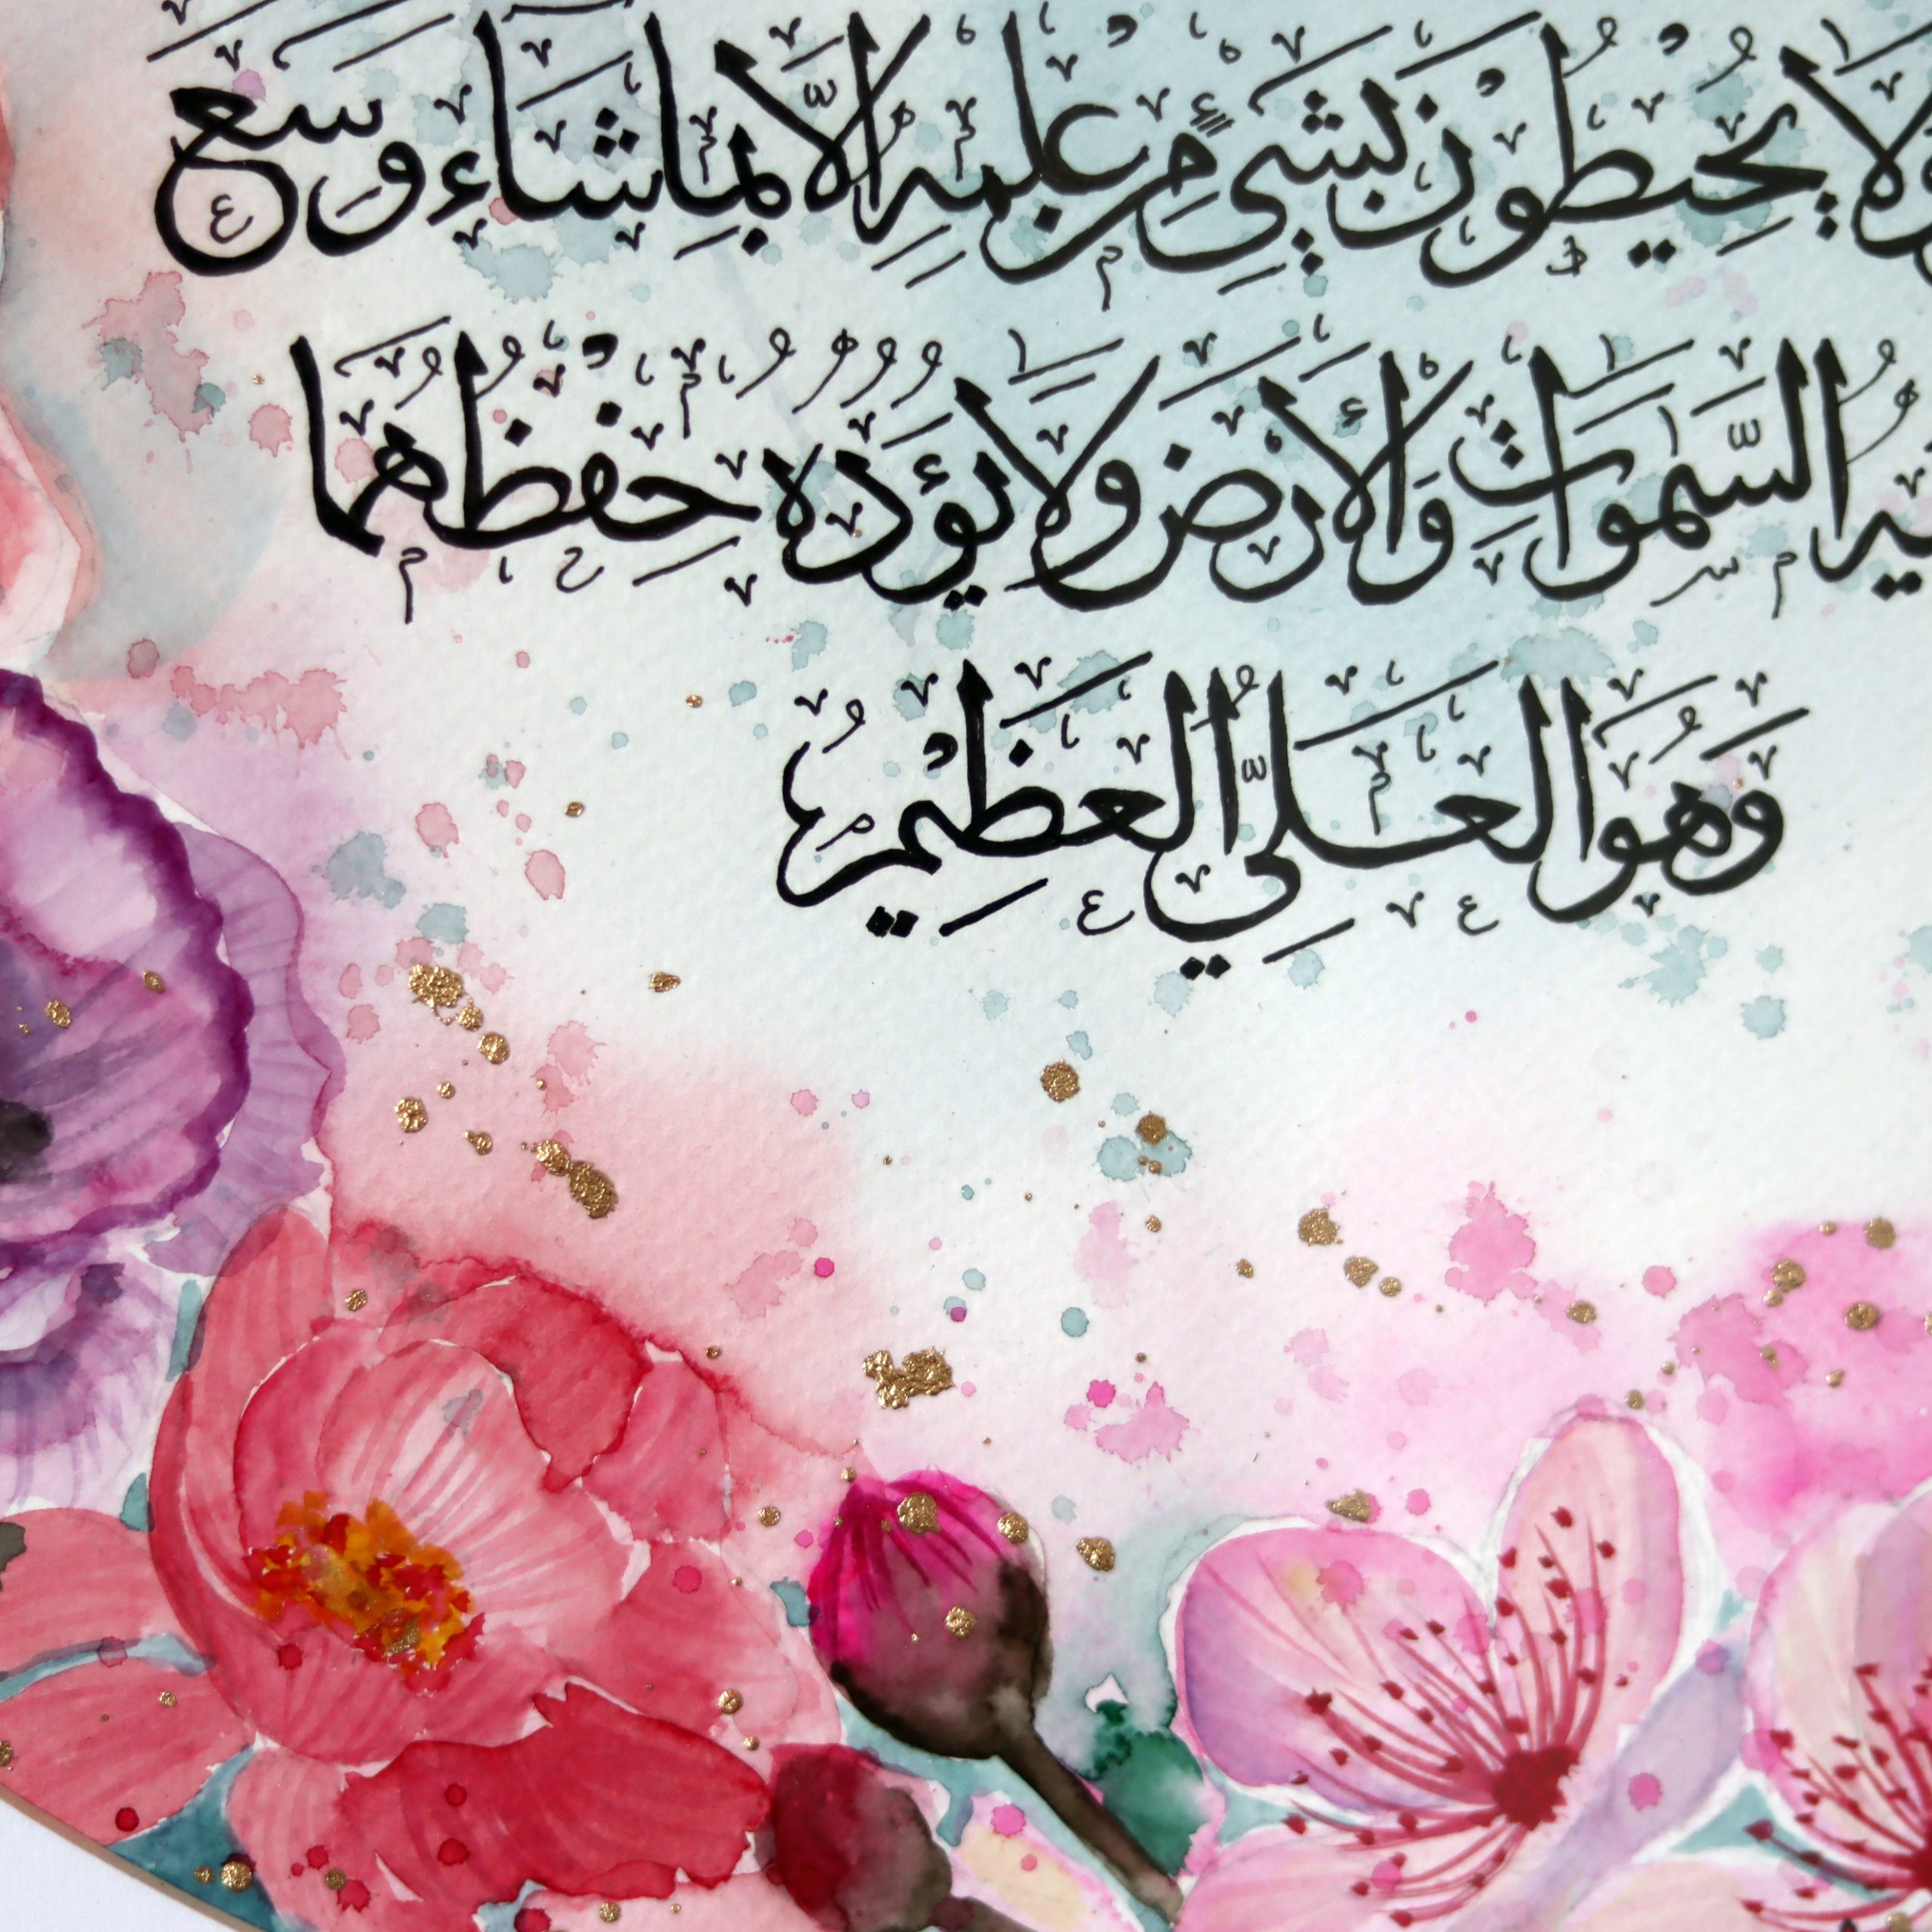 ولَا يُحِيْطُوْنَ بِشَيْءٍ مِّنْ عِلْمِهِ إِلَّا بِمَا شَاءَ وَسِعَ
السَّمَوَاتِ وَالْأَرْضَ وَلَا يَؤُدُهُ حِفْظُهُمَا
وَهُوَ الْعَلِيُّ الْعَظِيْمُ